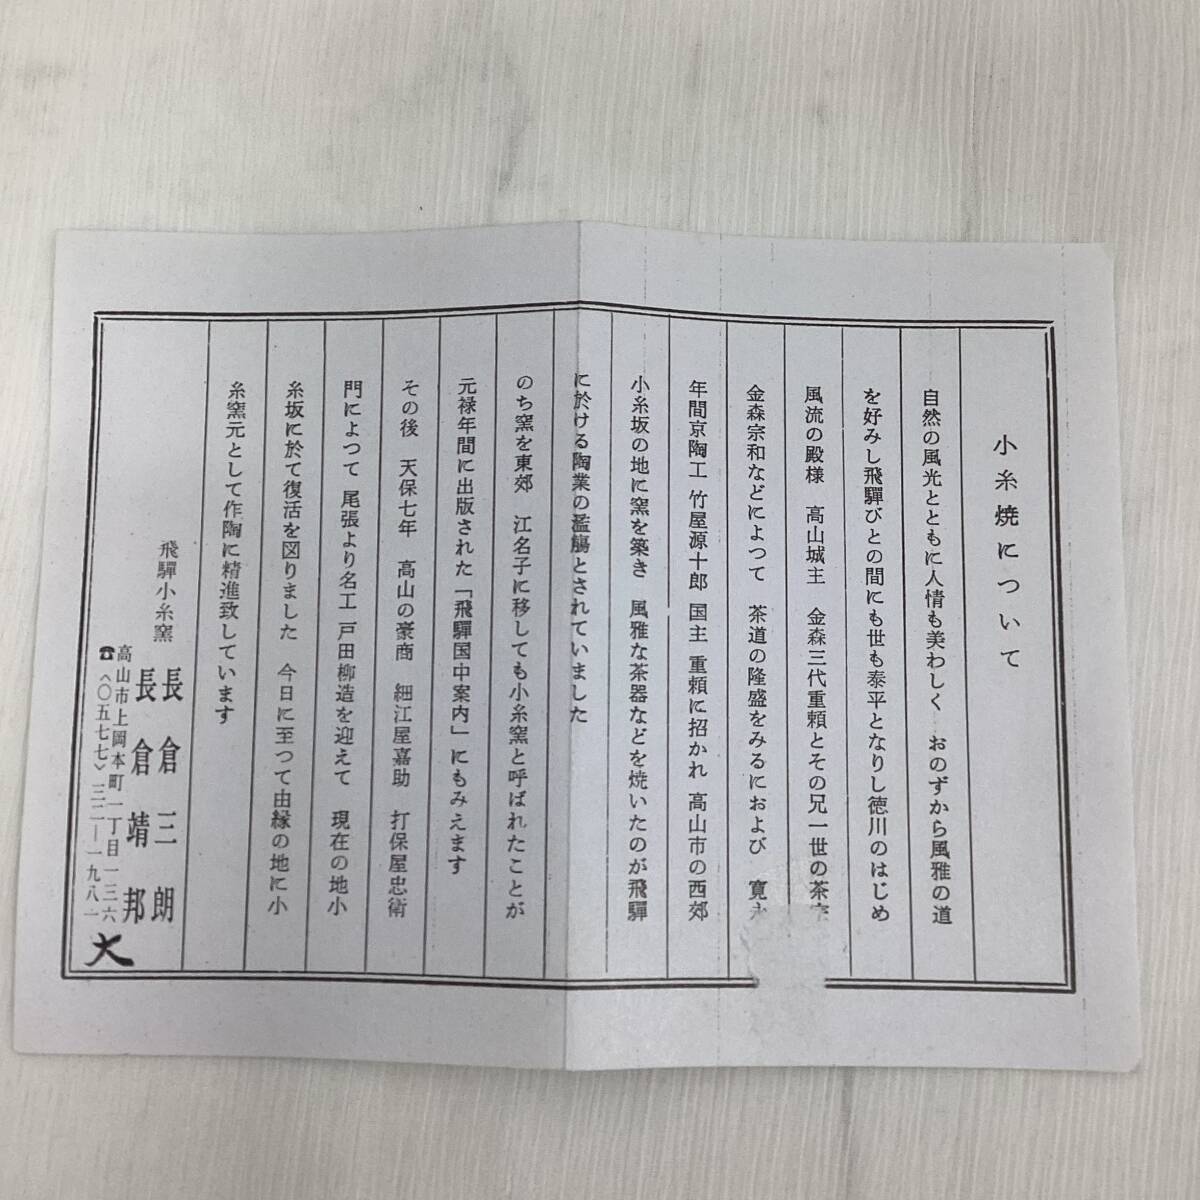 小糸焼について
自然の風光とともに人情も美わしく おのずから風雅の道
を好みし飛騨びとの間にも世も泰平となりし徳川のはじめ
風流の殿様 高山城主 金森三代重頼とその兄一世の茶
金森宗和などによつて 茶道の隆盛をみるにおよび 寛永
年間京陶工 竹屋源十郎 国主 重頼に招かれ 高山市の西郊
小糸坂の地に窯を築き 風雅な茶器などを焼いたのが飛騨
に於ける陶業の濫觴とされていました
のち窯を東郊 江名子に移しても小糸窯と呼ばれたことが
元禄年間に出版された「飛騨国中案内」にもみえます
その後 天保七年 高山の豪商 細江屋嘉助 打保屋忠術
門によつて 尾張より名工 戸田柳造を迎えて 現在の地小
糸坂に於て復活を図りました 今日に至つて由縁の地に小
糸窯元として作陶に精進致しています
飛騨小糸窯
長倉三朗
長倉靖邦
高山市上岡本町一丁目一三六
☎〈〇五七七〉三二―一九八一
大